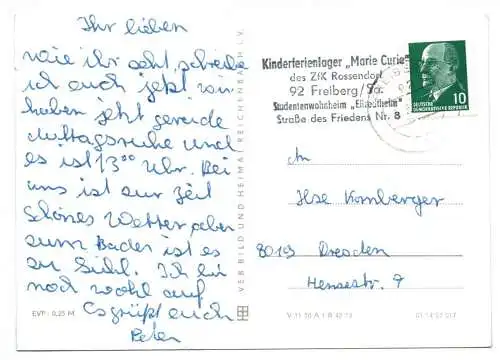 Ihr lieben
wie ihr seht, schreibe
ich euch jetzt wir
haben jetzt gerade
Mittagsruhe und
es ist 13⁰⁰ Uhr. Bei
uns ist zur Zeit
schönes Wetter, aber
zum Baden ist es
zu kühl. Ich bin
noch wohl auf
Es grüßt euch
Peter
EVP: 0,25 M
VEB BILD UND HEIMAT REICHENBACH I. V.
Kinderferienlager „Marie Curie"
des ZfK Rossendorf
92 Freiberg/Sa.
Studentenwohnheim
Straße des Friedens Nr. 8
10
DEUTSCHE
DEMOKRATISCHE REPUBLIK
An
Ilse Kornberger
80193 Dresden
Hensestr. 7